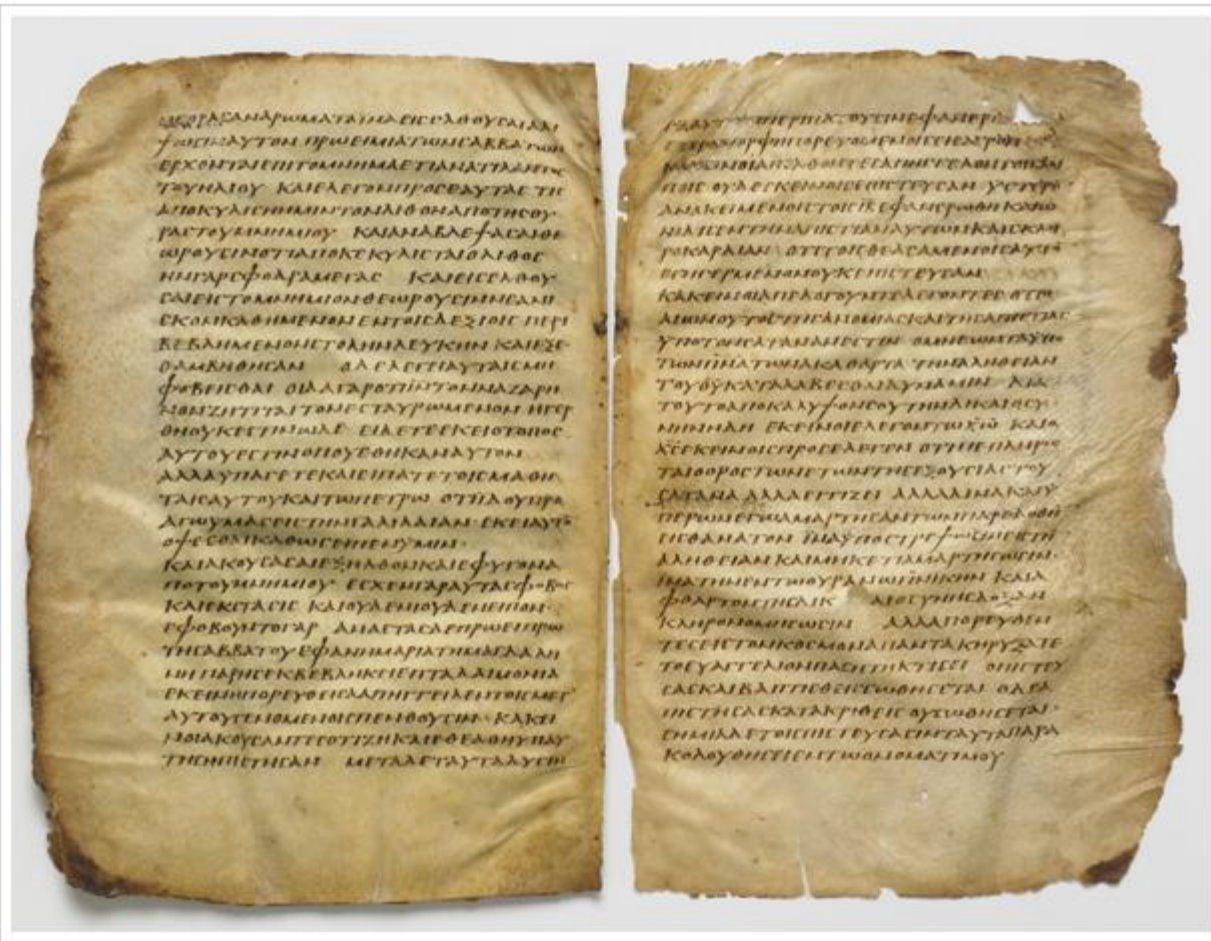 ΑΡΩΜΑΤΑΪΝΑΕΙΣΕΛΘΟΥΣΑΙΑΛΙ
ΑΥΤΟΝ ΠΡΩΕΙΜΙΑΤΩΝΣΑΒΒΑΤΩΝ
ΕΡΧΟΝΤΑΙΕΠΙΤΟΜΝΗΜΑΕΤΙΑΝΑΤΙΛΑΝΤΟΣ
ΤΟΥΗΛΙΟΥ ΚΑΙΕΛΕΓΟΝΠΡΟΣΕΑΥΤΑΣ ΤΙΣ
ΑΠΟΚΥΛΙΣΗΜΙΝΤΟΝΛΙΘΟΝΑΠΟΤΗΣΘΥ
ΡΑΣΤΟΥΜΝΗΜΙΟΥ ΚΑΙΑΝΑΒΛΕΨΑΣΑΙΘΕ
ΩΡΟΥΣΙΝΟΤΙΑΠΟΚΕΚΥΛΙΣΤΑΙΟΛΙΘΟΣ
ΗΝΓΑΡΣΦΟΔΡΑΜΕΓΑΣ ΚΑΙΕΙΣΕΛΘΟΥ
ΣΑΙΕΙΣΤΟΜΝΗΜΙΟΝΘΕΩΡΟΥΣΙΝΝΕΑΝΙ
ΣΚΟΝΚΑΘΗΜΕΝΟΝΕΝΤΟΙΣΔΕΞΙΟΙΣ ΠΕΡΙ
ΒΕΒΛΗΜΕΝΟΝΣΤΟΛΗΝΛΕΥΚΗΝ ΚΑΙΕΞΕ
ΘΑΜΒΗΘΗΣΑΝ ΟΔΕΛΕΓΕΙΑΥΤΑΙΣΜΗ
ΦΟΒΕΙΣΘΑΙ ΟΙΔΑΓΑΡΟΤΙΙΝΤΟΝΝΑΖΑΡΗ
ΝΟΝΖΗΤΙΤΑΙΤΟΝΕΣΤΑΥΡΩΜΕΝΟΝ ΗΓΕΡ
ΘΗΟΥΚΕΣΤΙΝΩΔΕ ΕΙΔΕΤΕΕΚΕΙΟΤΟΠΟΣ
ΑΥΤΟΥΕΣΤΙΝΟΠΟΥΕΘΗΚΑΝΑΥΤΟΝ
ΑΛΛΑΥΠΑΓΕΤΕΚΑΙΕΙΠΑΤΕΤΟΙΣΜΑΘΗ
ΤΑΙΣΑΥΤΟΥΚΑΙΤΩΠΕΤΡΩ ΟΤΙΪΔΟΥΠΡΟ
ΑΓΩΥΜΑΣΕΙΣΤΗΝΓΑΛΙΛΑΙΑΝ· ΕΚΕΙΑΥΤΟ
ΟΨΕΣΘΑΙΚΑΘΩΣΕΙΠΕΝΥΜΙΝ·
ΚΑΙΑΚΟΥΣΑΣΑΙΕΞΗΛΘΟΝΚΑΙΕΦΥΓΟΝΑ
ΠΟΤΟΥΜΝΗΜΙΟΥ ΕΣΧΕΝΓΑΡΑΥΤΑΣΦΟΒΟΣ
ΚΑΙΕΚΣΤΑΣΙΣ ΚΑΙΟΥΔΕΝΙΟΥΔΕΝΕΙΠΟΝ·
ΕΦΟΒΟΥΝΤΟΓΑΡ ΑΝΑΣΤΑΣΔΕΠΡΩΕΙΠΡΩ
ΤΗΣΑΒΒΑΤΟΥΕΦΑΝΗΜΑΡΙΑΤΗΜΑΓΔΑΛΗ
ΝΗΠΑΡΗΣΕΚΒΕΒΛΗΚΕΙΕΠΤΑΔΑΙΜΟΝΙΑ
ΕΚΕΙΝΗΠΟΡΕΥΘΕΙΣΑΑΠΗΓΓΕΙΛΕΝΤΟΙΣΜΕΤ
ΑΥΤΟΥΓΕΝΟΜΕΝΟΙΣΠΕΝΘΟΥΣΙΝ· ΚΑΚΕΙ
ΝΟΙΑΚΟΥΣΑΝΤΕΣΟΤΙΖΗΚΑΙΕΘΕΑΘΗΥΠΑΥ
ΤΗΣΗΠΙΣΤΗΣΑΝ ΜΕΤΑΔΕΤΑΥΤΑΔΥΣΙΝ
ΕΞΑΥΤΩΝΠΕΡΙΠΑΤΟΥΣΙΝΕΦΑΝΕΡΩ
ΕΤΕΡΑΜΟΡΦΗΠΟΡΕΥΟΜΕΝΟΙΣΕΙΣΑΓΡΟΝ
ΚΑΚΕΙΝΟΙΑΠΕΛΘΟΝΤΕΣΑΠΗΓΓΕΙΛΟΝΤΟΙΣΛΟΙ
ΠΟΙΣ ΟΥΔΕΕΚΕΙΝΟΙΣΕΠΙΣΤΕΥΣΑΝ ΥΣΤΕΡΟ
ΑΝΑΚΕΙΜΕΝΟΙΣΤΟΙΣΙΑΕΦΑΝΕΡΩΘΗΚΑΙΩ
ΝΙΔΙΣΕΝΤΗΝΑΠΙΣΤΙΑΝΑΥΤΩΝΚΑΙΣΚΛΗ
ΡΟΚΑΡΔΙΑΝ ΟΤΙΤΟΙΣΘΕΑΣΑΜΕΝΟΙΣΑΥΤΟ
ΕΓΗΓΕΡΜΕΝΟΝΟΥΚΕΠΙΣΤΕΥΣΑΝ
ΚΑΚΕΙΝΟΙΑΠΕΛΟΓΟΥΝΤΕΛΕΓΟΝΤΕΣΟΤΙΟ
ΑΙΩΝΟΥΤΟΣΤΗΣΑΝΟΜΙΑΣΚΑΙΤΗΣΑΠΙΣΤΙΑΣ
ΥΠΟΤΟΝΣΑΤΑΝΑΝΕΣΤΙΝ ΟΜΗΕΩΝΤΑΥΠΟ
ΤΩΝΠΝΑΤΩΝΑΚΑΘΑΡΤΑ ΤΗΝΑΛΗΘΕΙΑΝ
ΤΟΥΘΥΚΑΤΑΛΑΒΕΣΘΑΙΔΥΝΑΜΙΝ ΔΙΑ
ΤΟΥΤΟΑΠΟΚΑΛΥΨΟΝΣΟΥΤΗΝΔΙΚΑΙΟΣΥ
ΝΗΝΗΔΗ ΕΚΕΙΝΟΙΕΛΕΓΟΝΤΩΧΩ ΚΑΙΟ
ΧΣΕΚΕΙΝΟΙΣΠΡΟΣΕΛΕΓΕΝ ΟΤΙΠΕΠΛΗΡΩ
ΤΑΙΟΟΡΟΣΤΩΝΕΤΩΝΤΗΣΕΞΟΥΣΙΑΣΤΟΥ
ΣΑΤΑΝΑ ΑΛΛΑΕΓΓΙΖΕΙ ΑΛΛΑΔΙΝΑΚΑΙΥ
ΠΕΡΩΝΕΓΩΑΜΑΡΤΗΣΑΝΤΩΝΠΑΡΕΔΟΘΗ
ΕΙΣΘΑΝΑΤΟΝ ΪΝΑΥΠΟΣΤΡΕΨΩΣΙΝΕΙΣΤΗ
ΑΛΗΘΕΙΑΝ ΚΑΙΜΗΚΕΤΙΑΜΑΡΤΗΣΩΣΙΝ·
ΪΝΑΤΗΝΕΝΤΩΟΥΡΑΝΩΠΝΙΚΗΝ ΚΑΙΑ
ΦΘΑΡΤΟΝΤΗΣΔΙΚ ΑΙΟΣΥΝΗΣΔΟΞΑΝ
ΚΛΗΡΟΝΟΜΗΣΩΣΙΝ ΑΛΛΑΠΟΡΕΥΘΕΝ
ΤΕΣΕΙΣΤΟΝΚΟΣΜΟΝΑΠΑΝΤΑΚΗΡΥΞΑΤΕ
ΤΟΕΥΑΓΓΕΛΙΟΝΠΑΣΗΤΗΚΤΙΣΕΙ ΟΠΙΣΤΕΥ
ΣΑΣΚΑΙΒΑΠΤΙΣΘΕΙΣΣΩΘΗΣΕΤΑΙ ΟΔΕΑ
ΠΙΣΤΗΣΑΣΚΑΤΑΚΡΙΘΕΙΣ ΟΥΣΩΘΗΣΕΤΑΙ·
ΣΗΜΙΑΔΕΤΟΙΣΠΙΣΤΕΥΣΑΣΙΝΤΑΥΤΑΠΑΡΑ
ΚΟΛΟΥΘΗΣΕΙΕΝΤΩΟΝΟΜΑΤΙΜΟΥ